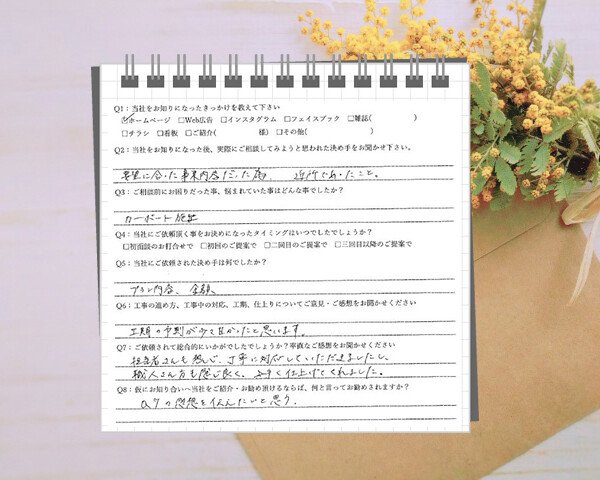 Q1：当社をお知りになったきっかけを教えて下さい
☑ホームページ □Web広告 □インスタグラム □フェイスブック □雑誌( )
□チラシ □看板 □ご紹介( 様) □その他( )
Q2：当社をお知りになった後、実際にご相談してみようと思われた決め手をお聞かせ下さい。
要望に合った事業内容だった為、 近所であったこと。
Q3：ご相談前にお困りだった事、悩まれていた事はどんな事でしたか？
カーポート施工
Q4：当社にご依頼頂く事をお決めになったタイミングはいつでしたでしょうか？
□初面談のお打合せで □初回のご提案で □二回目のご提案で □三回目以降のご提案で
Q5：当社にご依頼された決め手は何でしたか？
プラン内容、金額、
Q6：工事の進め方、工事中の対応、工期、仕上りについてご意見・ご感想をお聞かせください
工期の予判が少々甘かったと思います。
Q7：ご依頼されて総合的にいかがでしたでしょうか？率直なご感想をお聞かせください
担当者さんも感じ、丁寧に対応していただきましたし、
職人さん方も感じ良く、上手く仕上げてくれました。
Q8：仮にお知り合いへ当社をご紹介・お勧め頂けるならば、何と言ってお勧めされますか？
Q7の感想を伝えたいと思う。